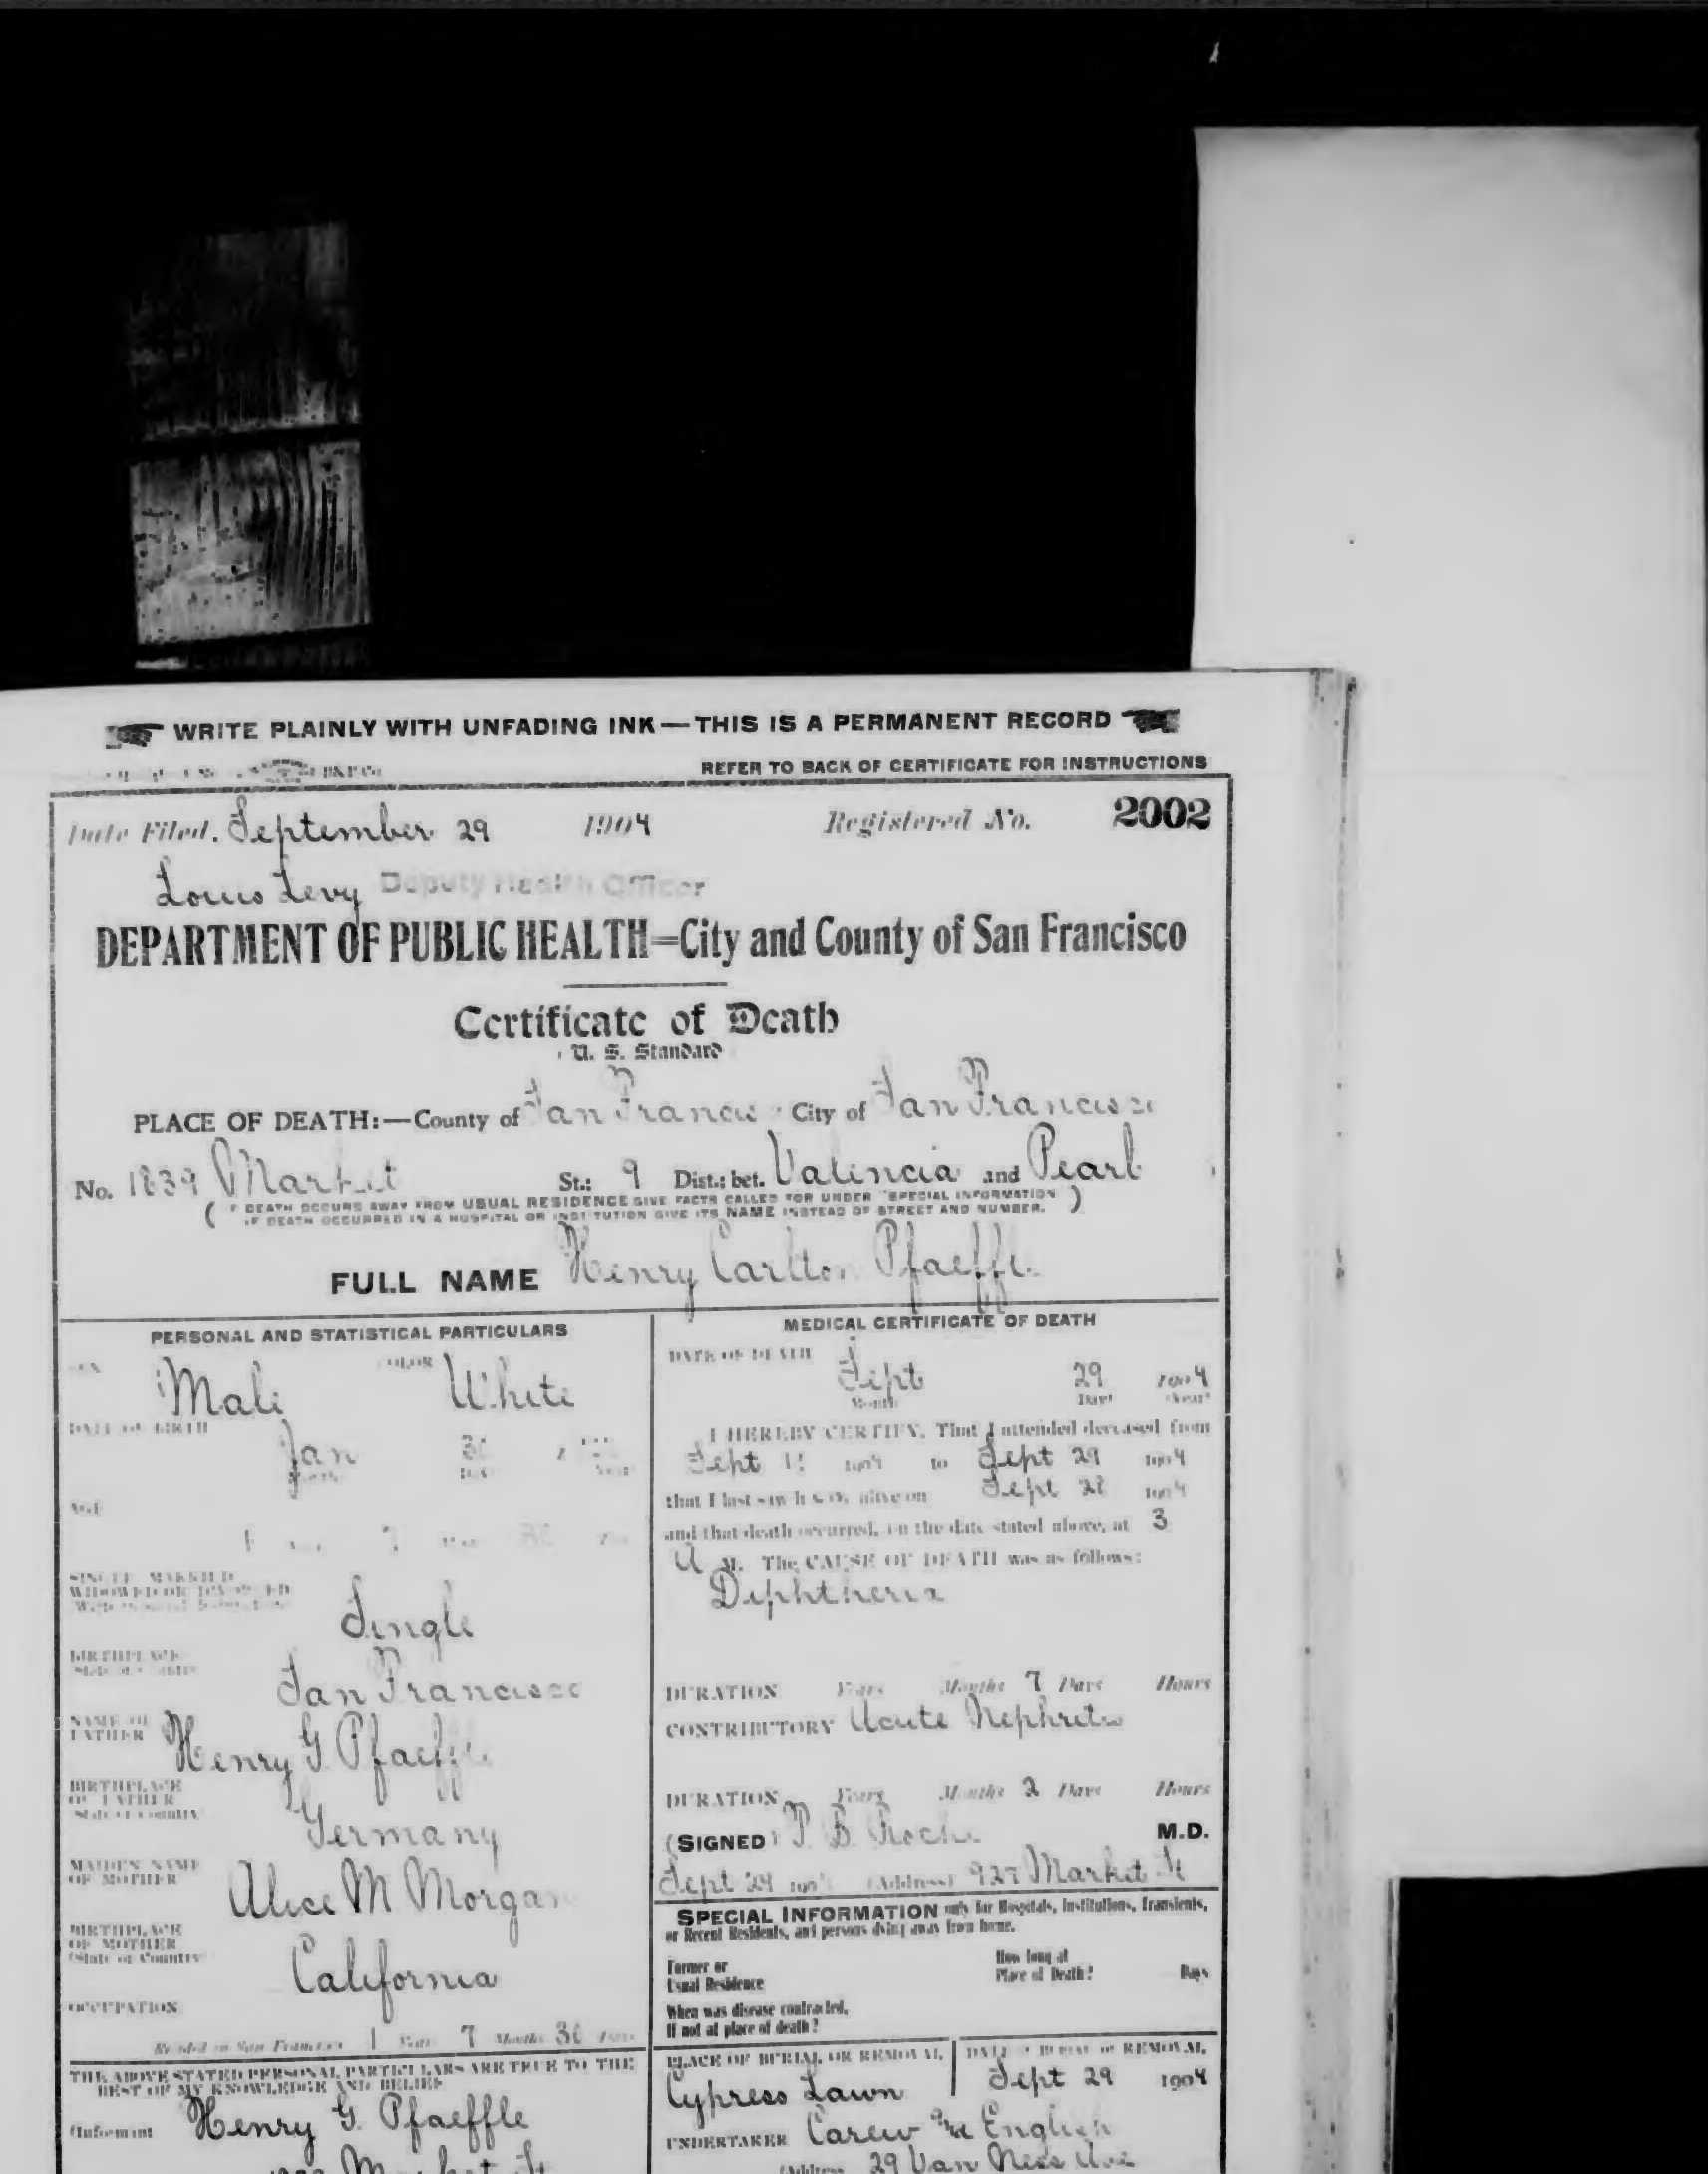 WRITE PLAINLY WITH UNFADING INK—THIS IS A PERMANENT RECORD
REFER TO BACK OF CERTIFICATE FOR INSTRUCTIONS
Date Filed. September 29 1904 Registered No. 2002
Louis Levy Deputy Health Officer
DEPARTMENT OF PUBLIC HEALTH=City and County of San Francisco
Certificate of Death
U. S. Standard
PLACE OF DEATH:—County of San Francis City of San Francisco
No. 1839 Market St.; 9 Dist.; bet. Valencia and Pearl
( IF DEATH OCCURS AWAY FROM USUAL RESIDENCE GIVE FACTS CALLED FOR UNDER "SPECIAL INFORMATION )
IF DEATH OCCURRED IN A HOSPITAL OR INSTITUTION GIVE ITS NAME INSTEAD OF STREET AND NUMBER.
FULL NAME Henry Carlton Pfaeffle
PERSONAL AND STATISTICAL PARTICULARS
SEX Male COLOR White
DATE OF BIRTH
Jan
AGE
1 7 30
SINGLE MARRIED
WIDOWED OR DIVORCED
Single
BIRTHPLACE
State or Country
San Francisco
NAME OF
FATHER
Henry G Pfaeffle
BIRTHPLACE
OF FATHER
State or Country
Germany
MAIDEN NAME
OF MOTHER
Alice M Morgan
BIRTHPLACE
OF MOTHER
(State or Country
California
OCCUPATION
Resided in San Francisco 1 Years 7 Months 30 Days
THE ABOVE STATED PERSONAL PARTICULARS ARE TRUE TO THE
BEST OF MY KNOWLEDGE AND BELIEF
(Informant Henry G. Pfaeffle
Market St
MEDICAL CERTIFICATE OF DEATH
DATE OF DEATH
Sept 29 1904
Month Day (Year)
I HEREBY CERTIFY, That I attended deceased from
Sept 1904 to Sept 29 1904
that I last saw him alive on Sept 28 1904
and that death occurred, on the date stated above, at 3
A M. The CAUSE OF DEATH was as follows:
Diphtheria
DURATION Years Months 7 Days Hours
CONTRIBUTORY Acute Nephritis
DURATION Years Months 2 Days Hours
(SIGNED) P B Roche M.D.
Sept 29 1904 (Address) 927 Market St
SPECIAL INFORMATION only for Hospitals, Institutions, Transients,
or Recent Residents, and persons dying away from home.
Former or
Usual Residence
How long at
Place of Death?
Days
When was disease contracted,
If not at place of death?
PLACE OF BURIAL OR REMOVAL
Cypress Lawn
DATE OF BURIAL or REMOVAL
Sept 29 1904
UNDERTAKER Carew & English
(Address 29 Van Ness Ave